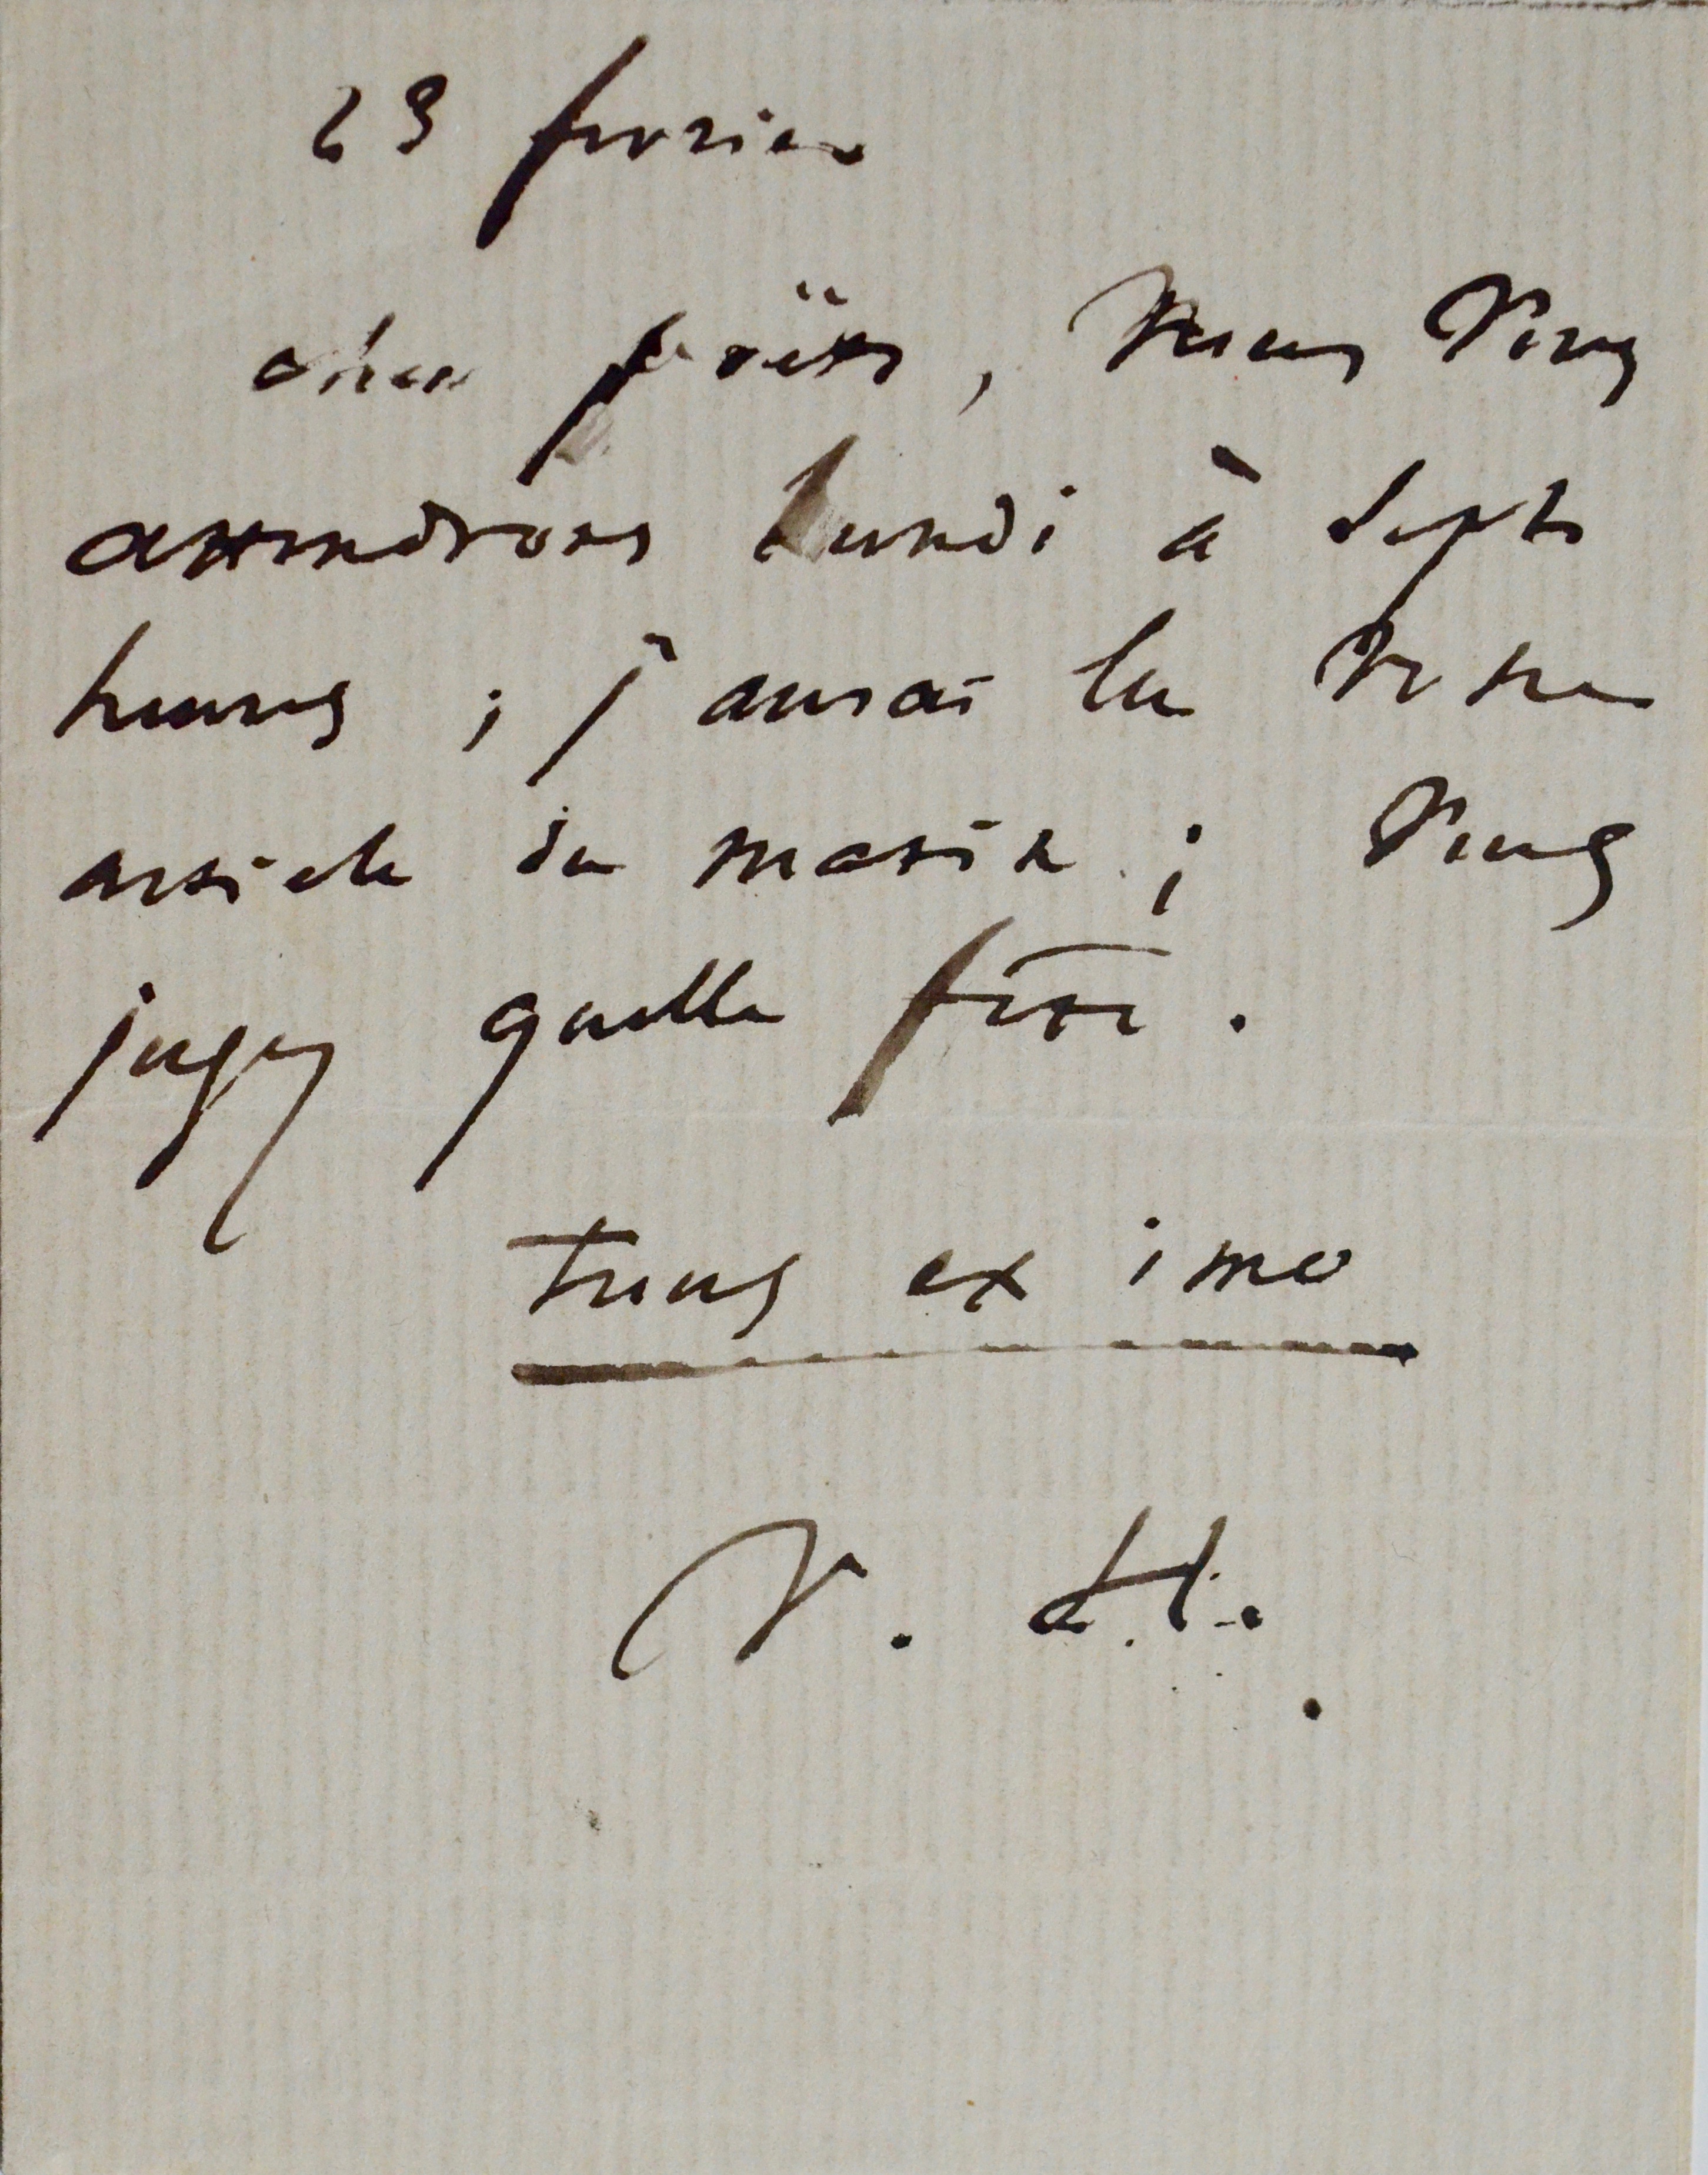 23 fevrier
cher poëte, Nous vous
attendrons lundi à sept
heures ; j'aurai lu votre
article du matin ; vous
jugez quelle fête.
tuus ex imo
V. H.